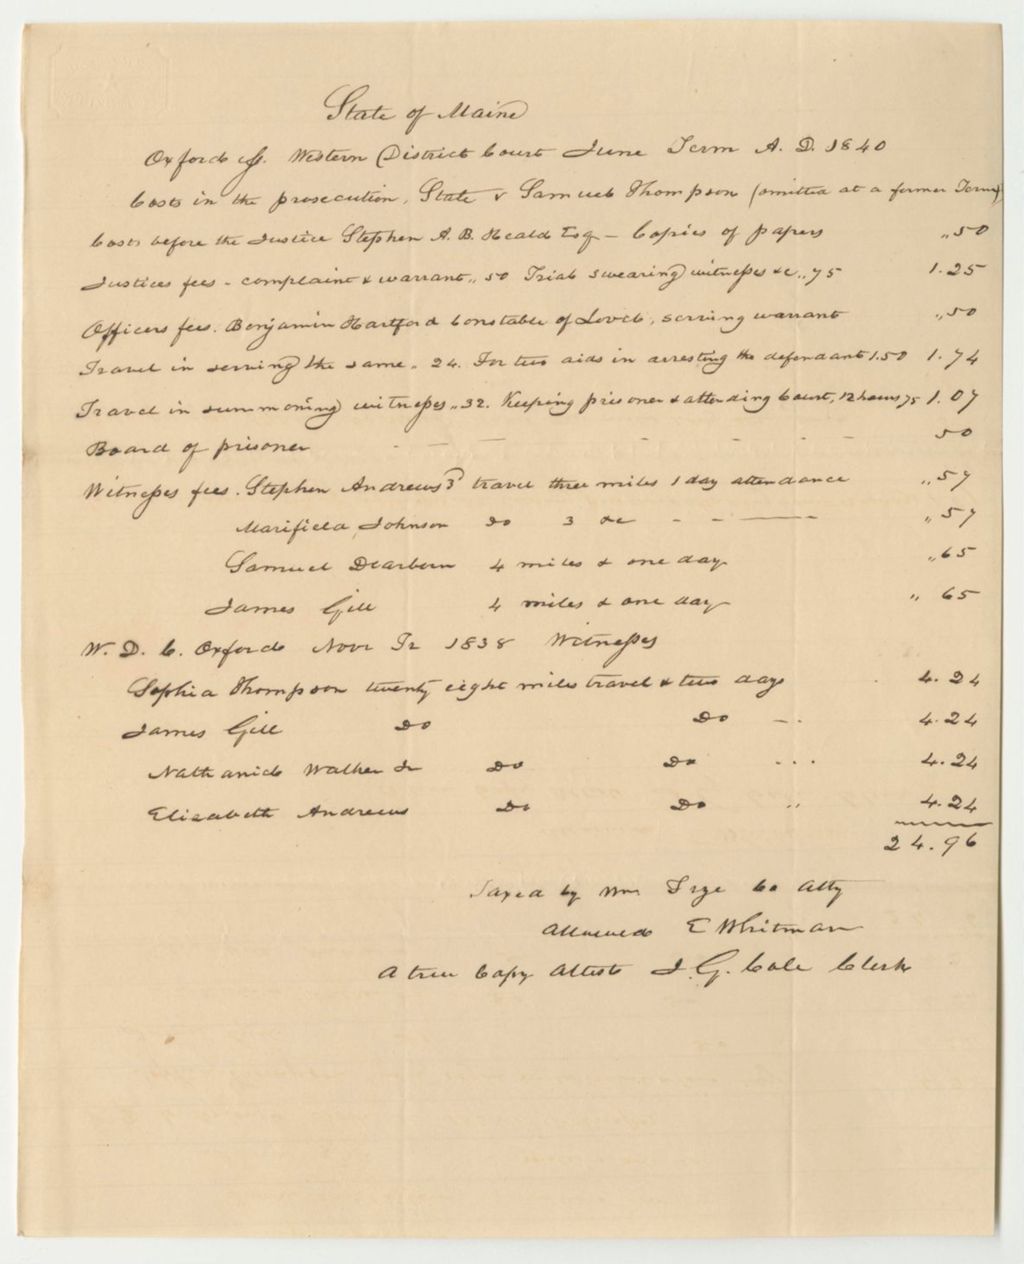 State of Maine
Oxford ss. Western District Court June Term A. D. 1840
Costs in the prosecution, State v Samuel Thompson (omitted at a former Term)
Costs before the Justice Stephen A. B. Heald Esq - Copies of papers ,,50
Justices fees - complaint & warrant ,, 50 Trial swearing witnesses &c ,, 75 1.25
Officers fees. Benjamin Hartford Constable of Lovel, serving warrant ,,50
Travel in serving the same ,, 24. For two aids in arresting the defendant 1.50 1.74
Travel in summoning witnesses ,, 32. Keeping prisoner & attending Court, 12 hours 75 1.07
Board of prisoner - - - - - - 50
Witnesses fees. Stephen Andrews 3d travel three miles 1 day attendance ,,57
Marifield Johnson do 3 &c - - - ,,57
Samuel Dearborn 4 miles & one day ,,65
James Gill 4 miles & one day ,, 65
W. D. C. Oxford Novr Tr 1838 Witnesses
Sophia Thompson twenty eight miles travel & two days 4.24
James Gill Do Do 4.24
Nathaniel Walker Jr Do Do 4.24
Elizabeth Andrews Do Do ,, 4.24
24.96
Taxed by Wm Frye Co Atty
Allowed E Whitman
A true Copy Attest J. G. Cole Clerk